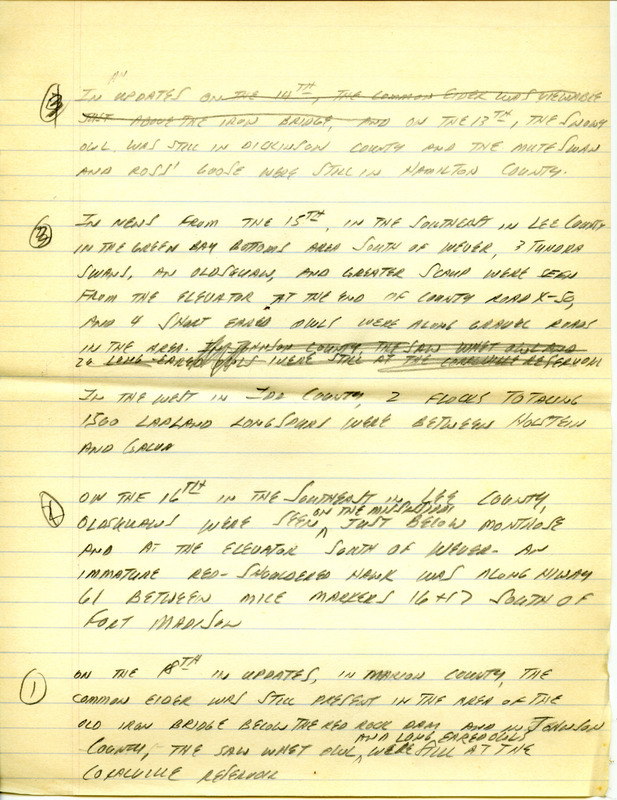 AN
(3) IN UPDATES ON THE 14TH, THE COMMON EIDER WAS VIEWABLE
JUST ABOVE THE IRON BRIDGE, AND ON THE 13TH, THE SNOWY
OWL WAS STILL IN DICKINSON COUNTY AND THE MUTE SWAN
AND ROSS' GOOSE WERE STILL IN HAMILTON COUNTY.
IN NEWS FROM THE 15TH, IN THE SOUTHEAST IN LEE COUNTY
IN THE GREEN BAY BOTTOMS AREA SOUTH OF WEVER, 3 TUNDRA
SWANS, AN OLDSQUAW, AND GREATER SCAUP WERE SEEN
FROM THE ELEVATOR AT THE END OF COUNTY ROAD X-50,
AND 4 SHORT EARED OWLS WERE ALONG GRAVEL ROADS
IN THE AREA. IN JOHNSON COUNTY THE SAW WHET OWL AND
26 LONG-EARED OWLS WERE STILL AT THE CORALVILLE RESERVOIR
IN THE WEST IN IDA COUNTY, 2 FLOCKS TOTALING
1500 LAPLAND LONGSPURS WERE BETWEEN HOLSTEIN
AND GALVA
ON THE 16TH IN THE SOUTHEAST IN LEE COUNTY,
ON THE MISSISSIPPI
OLDSQUAWS WERE SEEN JUST BELOW MONTROSE
AND AT THE ELEVATOR SOUTH OF WEVER. AN
IMMATURE RED-SHOULDERED HAWK WAS ALONG HIWAY
61 BETWEEN MILE MARKERS 16+17 SOUTH OF
FORT MADISON
(1) ON THE 18TH IN UPDATES, IN MARION COUNTY, THE
COMMON EIDER WAS STILL PRESENT IN THE AREA OF THE
OLD IRON BRIDGE BELOW THE RED ROCK DAM AND IN JOHNSON
AND LONG EARED OWLS
COUNTY, THE SAW WHET OWL WERE STILL AT THE
CORALVILLE RESERVOIR